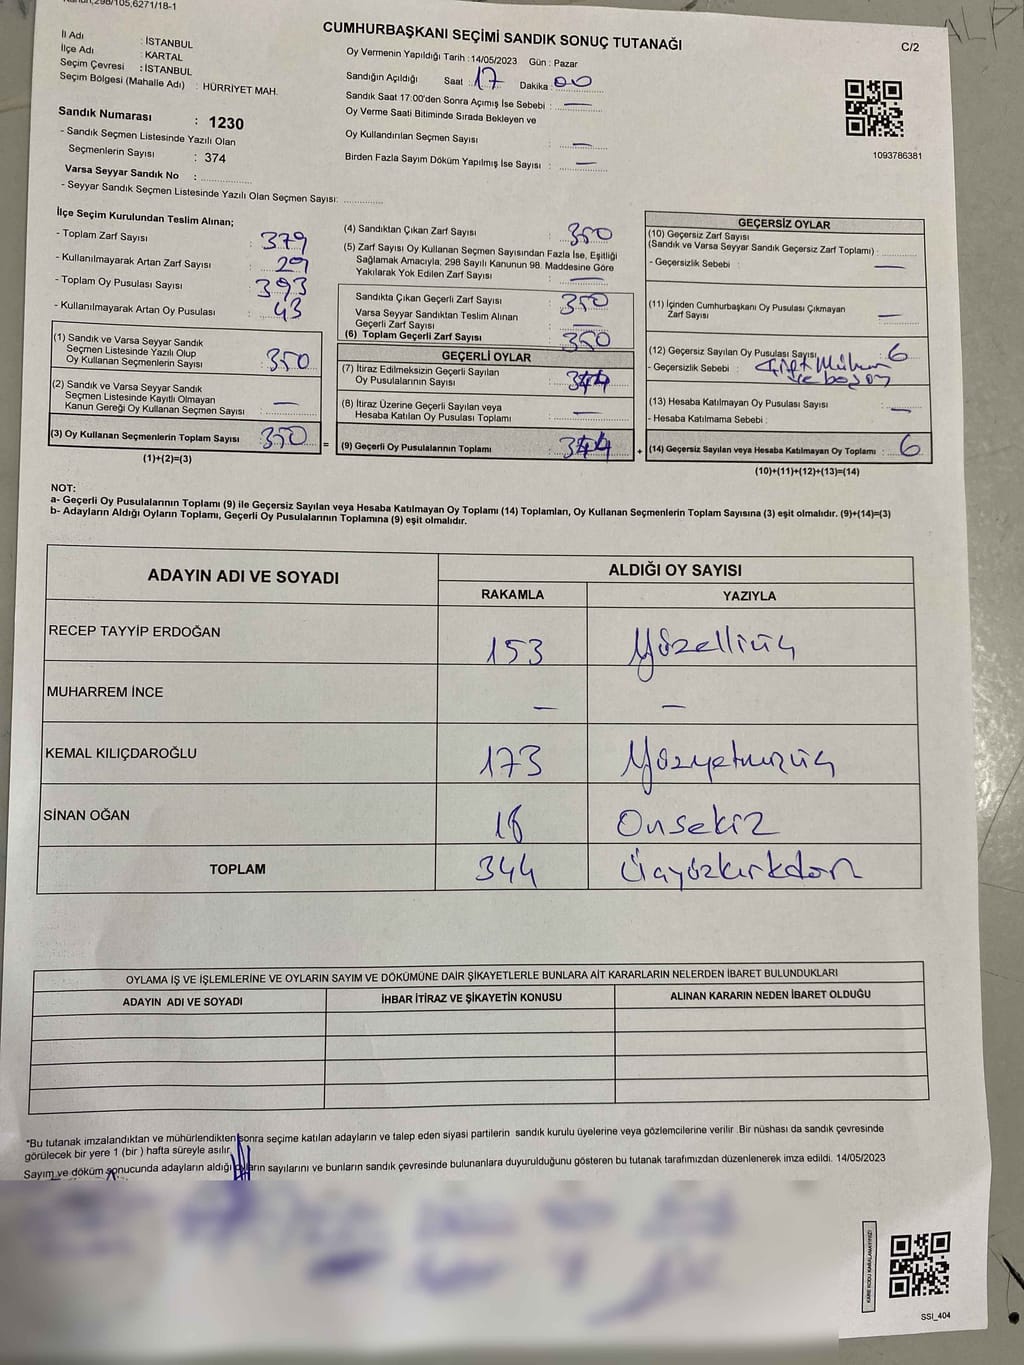 Kanun,298/105,6271/18-1
CUMHURBAŞKANI SEÇİMİ SANDIK SONUÇ TUTANAĞI
C/2
İl Adı : İSTANBUL
İlçe Adı : KARTAL
Seçim Çevresi : İSTANBUL
Seçim Bölgesi (Mahalle Adı) : HÜRRİYET MAH.
Sandık Numarası : 1230
- Sandık Seçmen Listesinde Yazılı Olan
Seçmenlerin Sayısı : 374
Varsa Seyyar Sandık No :
- Seyyar Sandık Seçmen Listesinde Yazılı Olan Seçmen Sayısı:
Oy Vermenin Yapıldığı Tarih : 14/05/2023 Gün : Pazar
Sandığın Açıldığı Saat : 17 Dakika : 00
Sandık Saat 17:00'den Sonra Açımış İse Sebebi : —
Oy Verme Saati Bitiminde Sırada Bekleyen ve
Oy Kullandırılan Seçmen Sayısı : —
Birden Fazla Sayım Döküm Yapılmış İse Sayısı : —
1093786381
İlçe Seçim Kurulundan Teslim Alınan;
- Toplam Zarf Sayısı : 379
- Kullanılmayarak Artan Zarf Sayısı : 29
- Toplam Oy Pusulası Sayısı : 393
- Kullanılmayarak Artan Oy Pusulası : 43
(1) Sandık ve Varsa Seyyar Sandık
Seçmen Listesinde Yazılı Olup
Oy Kullanan Seçmenlerin Sayısı : 350
(2) Sandık ve Varsa Seyyar Sandık
Seçmen Listesinde Kayıtlı Olmayan
Kanun Gereği Oy Kullanan Seçmen Sayısı : —
(3) Oy Kullanan Seçmenlerin Toplam Sayısı : 350 =
(1)+(2)=(3)
(4) Sandıktan Çıkan Zarf Sayısı : 350
(5) Zarf Sayısı Oy Kullanan Seçmen Sayısından Fazla İse, Eşitliği
Sağlamak Amacıyla, 298 Sayılı Kanunun 98. Maddesine Göre
Yakılarak Yok Edilen Zarf Sayısı : —
Sandıkta Çıkan Geçerli Zarf Sayısı : 350
Varsa Seyyar Sandıktan Teslim Alınan
Geçerli Zarf Sayısı : —
(6) Toplam Geçerli Zarf Sayısı : 350
GEÇERLİ OYLAR
(7) İtiraz Edilmeksizin Geçerli Sayılan
Oy Pusulalarının Sayısı : 344
(8) İtiraz Üzerine Geçerli Sayılan veya
Hesaba Katılan Oy Pusulası Toplamı : —
(9) Geçerli Oy Pusulalarının Toplamı : 344 +
GEÇERSİZ OYLAR
(10) Geçersiz Zarf Sayısı
(Sandık ve Varsa Seyyar Sandık Geçersiz Zarf Toplamı) :
- Geçersizlik Sebebi : —
(11) İçinden Cumhurbaşkanı Oy Pusulası Çıkmayan
Zarf Sayısı : —
(12) Geçersiz Sayılan Oy Pusulası Sayısı : 6
- Geçersizlik Sebebi : Çift Mühür
(13) Hesaba Katılmayan Oy Pusulası Sayısı : —
- Hesaba Katılmama Sebebi :
(14) Geçersiz Sayılan veya Hesaba Katılmayan Oy Toplamı : 6
(10)+(11)+(12)+(13)=(14)
NOT:
a- Geçerli Oy Pusulalarının Toplamı (9) ile Geçersiz Sayılan veya Hesaba Katılmayan Oy Toplamı (14) Toplamları, Oy Kullanan Seçmenlerin Toplam Sayısına (3) eşit olmalıdır. (9)+(14)=(3)
b- Adayların Aldığı Oyların Toplamı, Geçerli Oy Pusulalarının Toplamına (9) eşit olmalıdır.
ADAYIN ADI VE SOYADI ALDIĞI OY SAYISI
RAKAMLA YAZIYLA
RECEP TAYYİP ERDOĞAN 153 Yüzelliüç
MUHARREM İNCE — —
KEMAL KILIÇDAROĞLU 173 Yüzyetmişüç
SİNAN OĞAN 18 Onsekiz
TOPLAM 344 Üçyüzkırkdört
OYLAMA İŞ VE İŞLEMLERİNE VE OYLARIN SAYIM VE DÖKÜMÜNE DAİR ŞİKAYETLERLE BUNLARA AİT KARARLARIN NELERDEN İBARET BULUNDUKLARI
ADAYIN ADI VE SOYADI İHBAR İTİRAZ VE ŞİKAYETİN KONUSU ALINAN KARARIN NEDEN İBARET OLDUĞU
*Bu tutanak imzalandıktan ve mühürlendikten sonra seçime katılan adayların ve talep eden siyasi partilerin sandık kurulu üyelerine veya gözlemcilerine verilir .Bir nüshası da sandık çevresinde
görülecek bir yere 1 (bir ) hafta süreyle asılır.
Sayım ve döküm sonucunda adayların aldığı oyların sayılarını ve bunların sandık çevresinde bulunanlara duyurulduğunu gösteren bu tutanak tarafımızdan düzenlenerek imza edildi. 14/05/2023
KARE KODU KARALAMAYINIZ!
SSİ_404